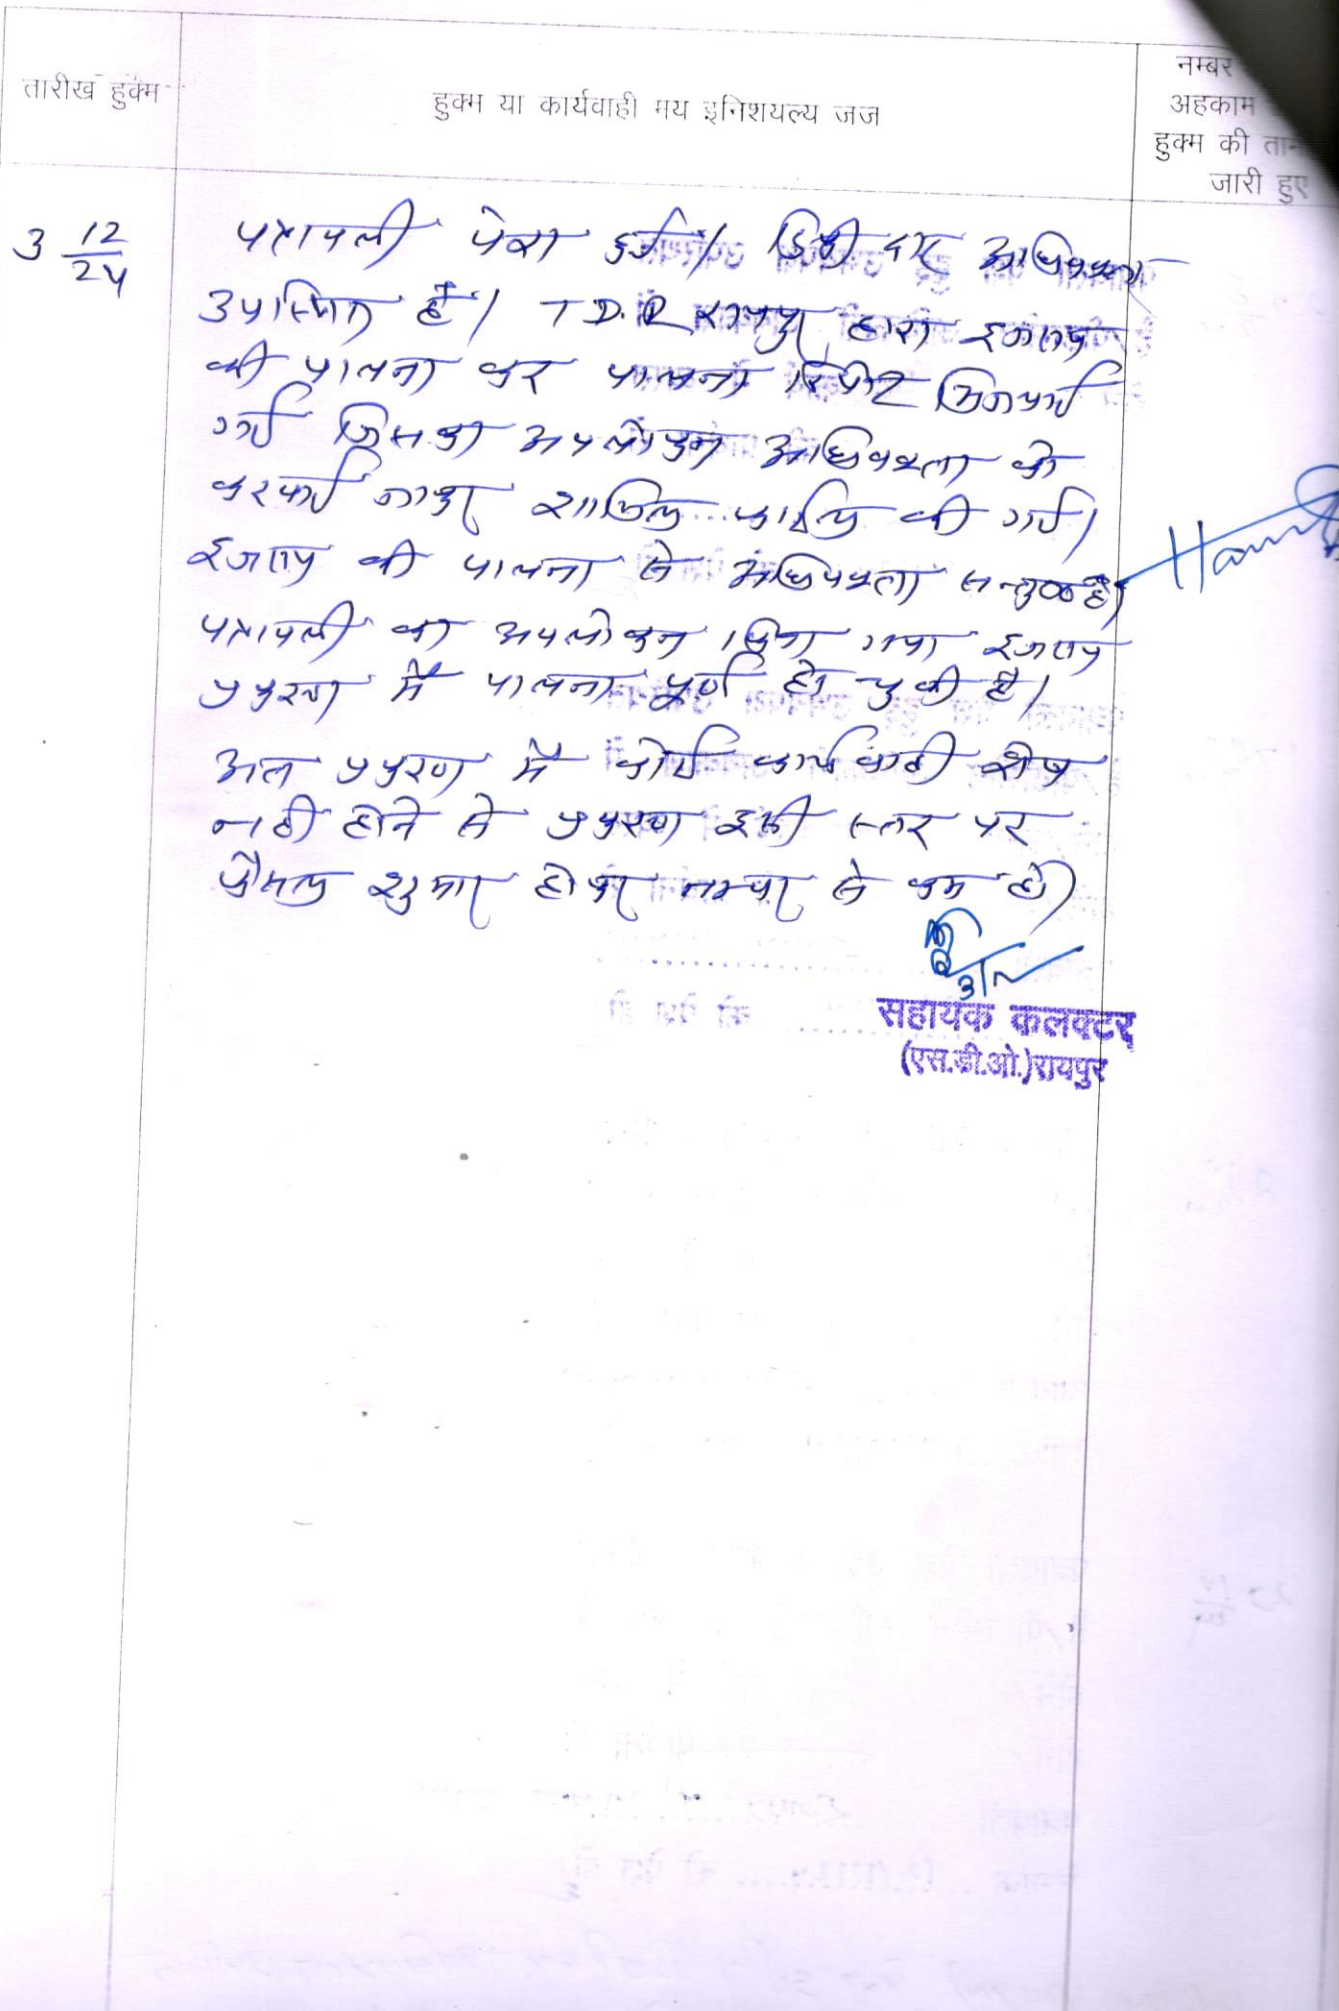 तारीख हुक्म
हुक्म या कार्यवाही मय इनिशयल्य जज
नम्बर
अहकाम
हुक्म की ताम
जारी हुए
3 12/24
पत्रावली पेश हुई। डिक्रीदार अधिवक्ता
उपस्थित है। T.D.R रायपुर द्वारा इजराय
की पालना कर पालना रिपोर्ट भिजवाई
गई जिसका अवलोकन अधिवक्ता को
करवाई जाकर शामिल फाईल की गई।
इजराय की पालना से अधिवक्ता सन्तुष्ट है।
पत्रावली का अवलोकन किया गया इजराय
प्रकरण में पालना पूर्ण हो चुकी है।
अतः प्रकरण में कोई कार्यवाही शेष
नही होने से प्रकरण इसी स्तर पर
फैसल शुमार होकर नम्बर से कम हो।
3/12
सहायक कलक्टर
(एस.डी.ओ.)रायपुर